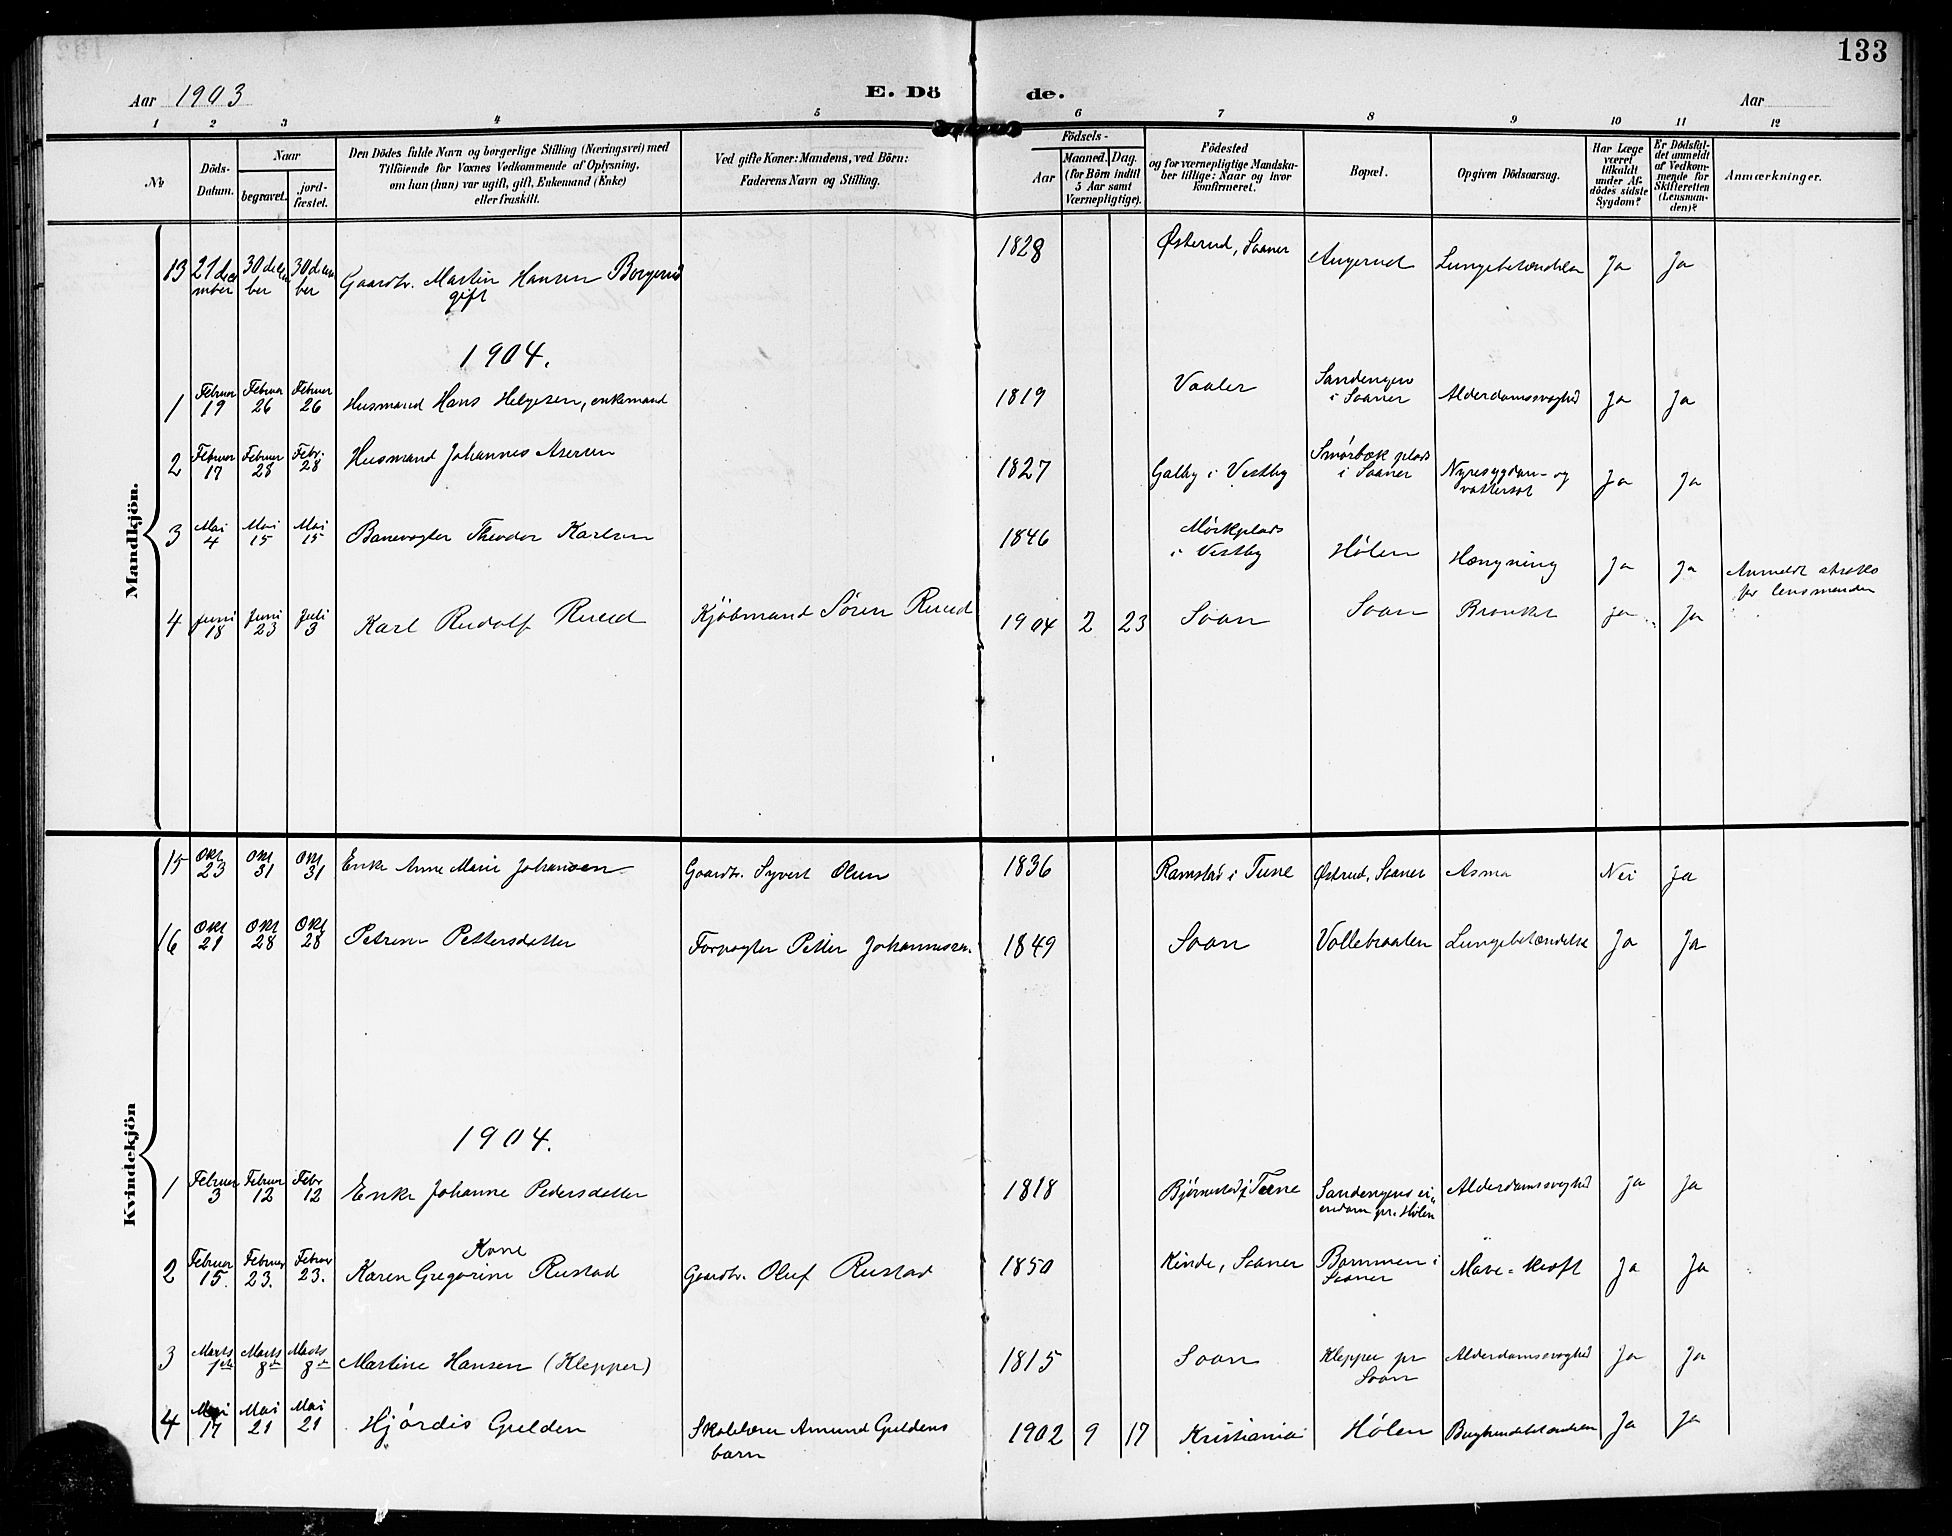 133
Aar 1903
E. Dö de.
Aar
1 2 3 4 5 6 7 8 9 10 11 12
No
Döds-Datum.
Naar
begravet.
jord-fæstet.
Den Dödes fulde Navn og borgerlige Stilling (Næringsvei) med
Tilföiende for Voxnes Vedkommende af Oplysning,
om han (hun) var ugift, gift, Enkemand (Enke)
eller fraskilt.
Ved gifte Koner: Mandens, ved Börn:
Faderens Navn og Stilling.
Födsels-
Aar
Maaned. Dag.
(for Börn indtil
5 Aar samt
Værnepligtige).
Födested
og for værnepligtige Mandska-
ber tillige: Naar og hvor
konfirmeret.
Bopæl.
Opgiven Dödsaarsag.
Har Læge
været
tilkaldt
under Af-
dödes sidste
Sygdom?
Er Dödsfal-
det anmeldt
af Vedkom-
mende for
Skifteretten
(Lensman-
den)?
Anmærkninger.
Mandkjön.
13 27 december 30 december 30 december Gaardbr. Martin Hansen Borgerud gift 1828 Østerud, Saaner Angerud Lungebetændelse Ja Ja
1904.
1 Februar 19 Februar 26 Februar 26 Husmand Hans Helgesen, enkemand 1819 Vaaler Sandengen i Saaner Alderdomssvaghed Ja Ja
2 Februar 17 Februar 28 Febr. 28 Husmand Johannes Asersen 1827 Galby i Vestby Smörbæk plads i Saaner Nyresygdom- og vattersot Ja Ja
3 Mai 4 Mai 15 Mai 15 Banevogter Theodor Karlsen 1846 Mörkplads i Vestby Hölen Hængning Ja Ja Anmeldt straks for lensmanden
4 Juni 18 Juni 23 Juli 3 Karl Rudolf Ruud Kjöbmand Sören Ruud 1904 2 23 Soon Soon Bronkit Ja Ja
Kvindekjön
15 Okt 23 Okt 31 Okt 31 Enke Anne Marie Johansen Gaardbr. Syvert Olsen 1836 Ramstad i Tune Østrud, Saaner Asma Nei Ja
16 Okt 21 Okt 28 Okt 28 Petrine Pettersdatter Forpagter Petter Johannesen 1849 Soon Vollebraaten Lungebetændelse Ja Ja
1904.
1 Februar 3 Februar 12 Febr 12 Enke Johanne Pedersdatter 1818 Björnestad i Tune Sandengens eiendom pr. Hölen Alderdomssvaghed Ja Ja
2 Februar 15. Februar 23. Februar 23. Kone Karen Gregorine Rustad Gaardbr. Oluf Rustad 1850 Kinde, Saaner Bommen i Saaner Mave-kræft Ja Ja
3 Marts 1ste Marts 8de Marts 8de Martine Hansen (Klepper) 1815 Soon Klepper pr Soon Alderdomssvaghed Ja Ja
4 Mai 17 Mai 21 Mai 21 Hjördis Gulden Skolelærer Amund Guldens barn 1902 9 17 Kristiania Hölen Brysthindebetændelse Ja Ja